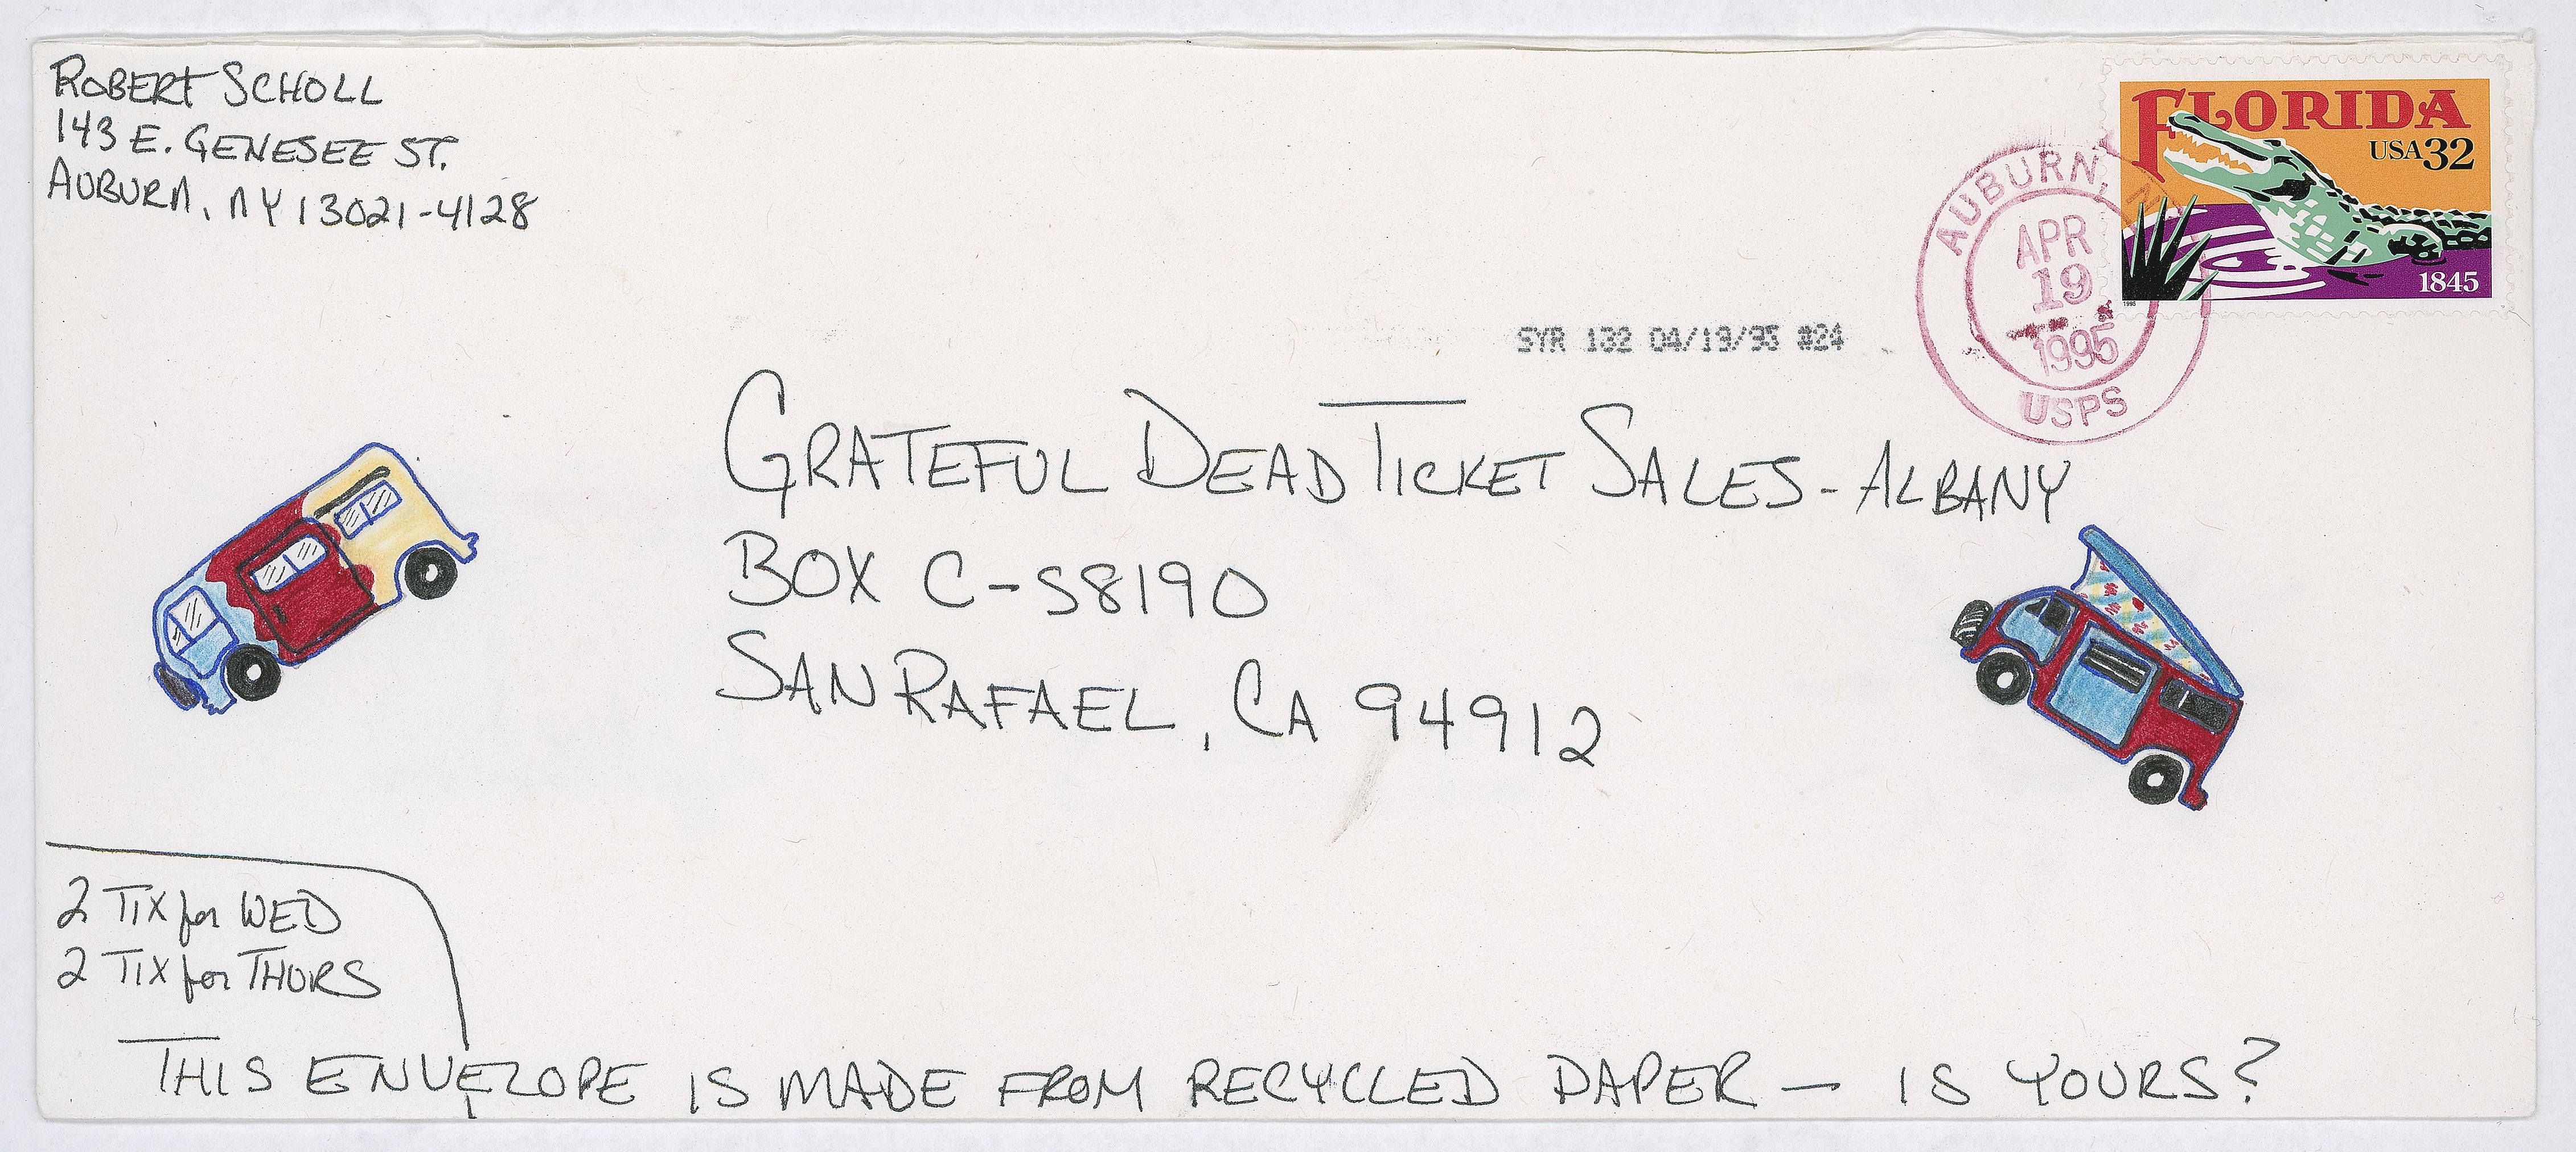 ROBERT SCHOLL
143 E. GENESEE ST.
AUBURN, NY 13021-4128
FLORIDA
USA 32
1845
1995
AUBURN, N
APR
19
1995
USPS
SYR 132 04/19/95 #24
GRATEFUL DEAD TICKET SALES - ALBANY
BOX C-S8190
SAN RAFAEL, CA 94912
2 TIX for WED
2 TIX for THURS
THIS ENVELOPE IS MADE FROM RECYCLED PAPER — IS YOURS?